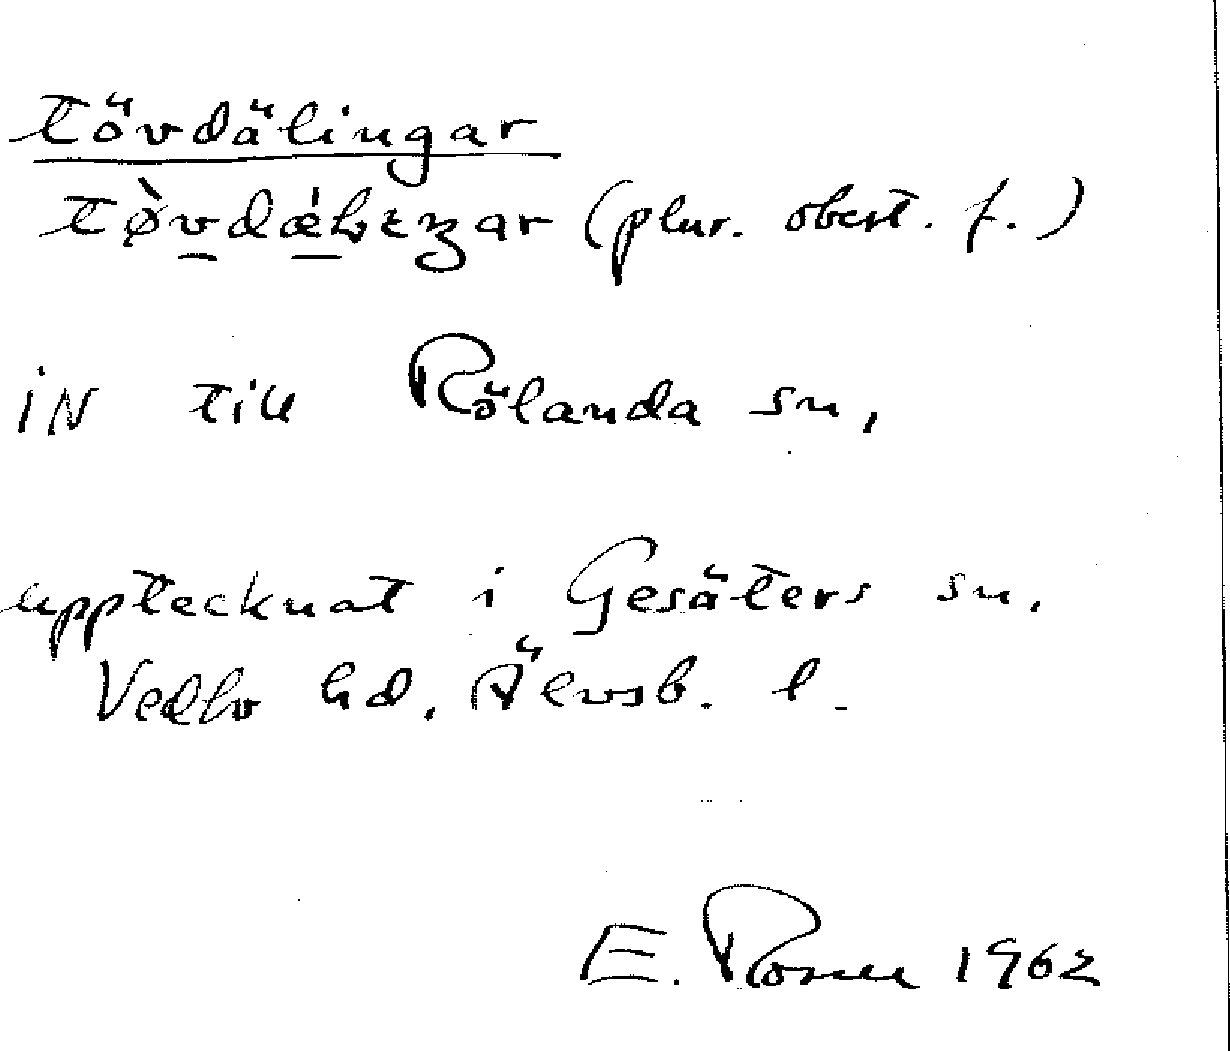 tövdälingar
tø̀vdǽlıŋar (plur. obest. f.)
iN till Rölanda sn,
upptecknat i Gesäters sn.
Vedbo hd, Älvsb. l.
E. Rosell 1962